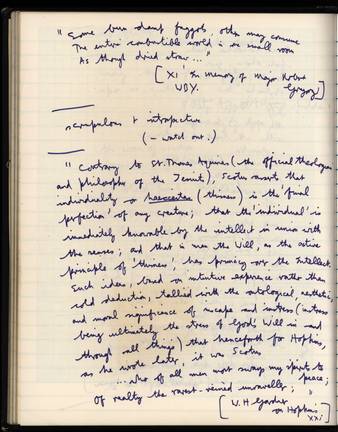 " Some burn damp faggots, others may consume
The entire combustible world in one small room
As though dried straw ... "
[ XI ' In memory of Major Robert
Gregory ]
WBY.
scrupulous & introspective
( — watch out. )
" Contrary to St. Thomas Aquinas (the official theologian
and philosopher of the Jesuits), Scotus asserts that
individuality or haecceitas ('thisness') is the 'final
perfection' of any creature; that the 'individual' is
immediately knowable by the intellect in union with
the senses; and that in man the Will, as the active
principle of 'thisness', has primacy over the Intellect.
Such ideas, based on intuitive experience rather than
cold deduction, tallied with the ontological, aesthetic,
and moral significance of inscape and instress (instress
being ultimately the stress of God's Will in and
through all things) that henceforth for Hopkins,
as he wrote later, it was Scotus
... who of all men most sways my spirits to
peace;
Of realty the rarest-veinèd unraveller; "
[ W. H. Gardner
on Hopkins
xxi ]